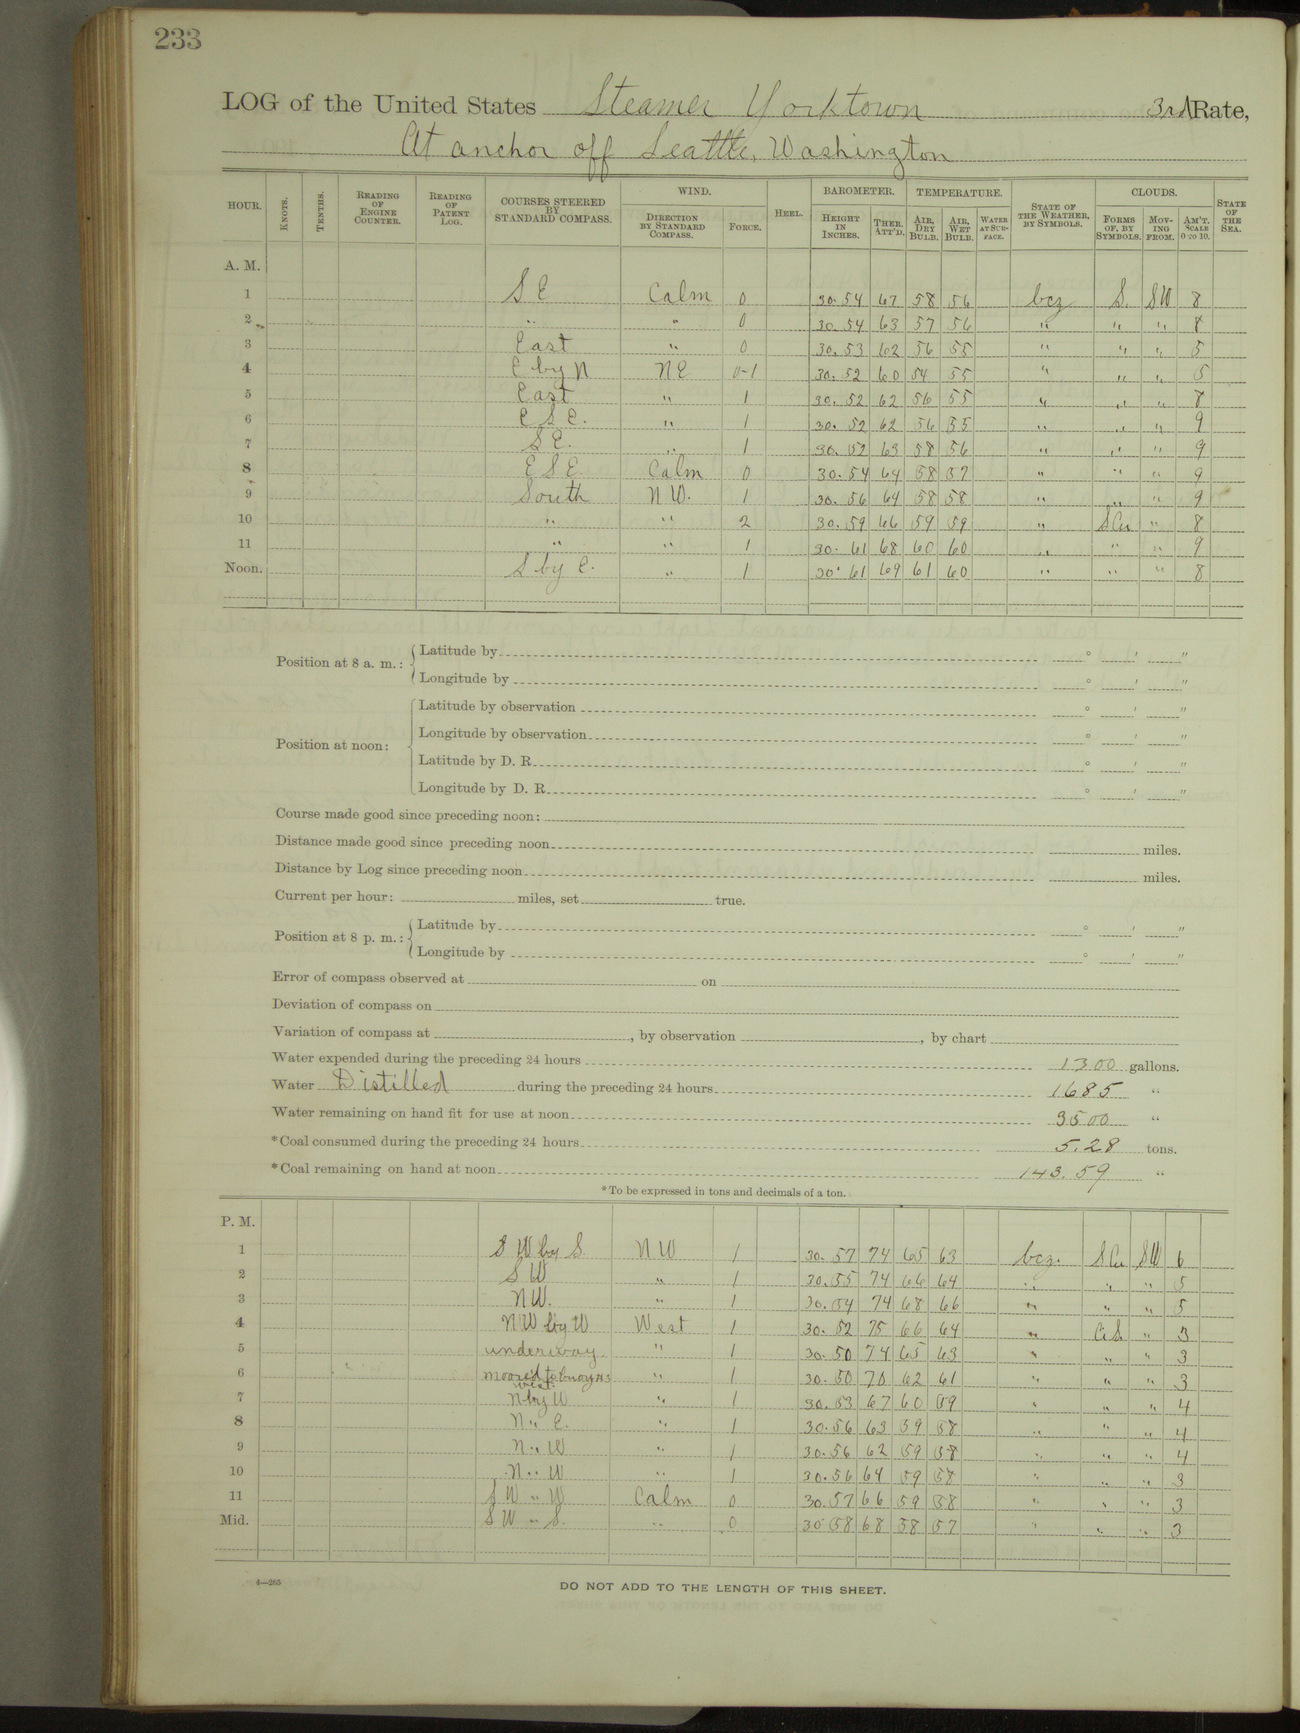 233
LOG of the United States Steamer Yorktown 3rd Rate,
At anchor off Seattle, Washington
HOUR. KNOTS. TENTHS. READING OF ENGINE COUNTER. READING OF PATENT LOG. COURSES STEERED BY STANDARD COMPASS. WIND. DIRECTION BY STANDARD COMPASS. FORCE. HEEL. BAROMETER. HEIGHT IN INCHES. THER. ATT'D. TEMPERATURE. AIR, DRY BULB. AIR, WET BULB. WATER AT SURFACE. STATE OF THE WEATHER, BY SYMBOLS. CLOUDS. FORMS OF, BY SYMBOLS. MOVING FROM. AM'T. SCALE 0 TO 10. STATE OF THE SEA.
A. M.
1 S E Calm 0 30.54 67 58 56 bcz S. SW 8
2 " " 0 30.54 63 57 56 " " " 8
3 East " 0 30.53 62 56 55 " " " 5
4 E by N NE 0-1 30.52 60 54 55 " " " 5
5 East " 1 30.52 62 56 55 " " " 8
6 E S E. " 1 30.52 62 56 55 " " " 9
7 S E. " 1 30.52 63 58 56 " " " 9
8 E S E Calm 0 30.54 64 58 57 " " " 9
9 South N W. 1 30.56 64 58 58 " " " 9
10 " " 2 30.59 66 59 59 " S Cu " 8
11 " " 1 30.61 68 60 60 " " " 9
Noon. S by E. " 1 30.61 69 61 60 " " " 8
Position at 8 a. m.: Latitude by ° ′ ″
Longitude by ° ′ ″
Position at noon: Latitude by observation ° ′ ″
Longitude by observation ° ′ ″
Latitude by D. R. ° ′ ″
Longitude by D. R. ° ′ ″
Course made good since preceding noon:
Distance made good since preceding noon miles.
Distance by Log since preceding noon miles.
Current per hour: miles, set true.
Position at 8 p. m.: Latitude by ° ′ ″
Longitude by ° ′ ″
Error of compass observed at on
Deviation of compass on
Variation of compass at , by observation , by chart
Water expended during the preceding 24 hours 1300 gallons.
Water Distilled during the preceding 24 hours 1685 "
Water remaining on hand fit for use at noon 3500 "
*Coal consumed during the preceding 24 hours 5.28 tons.
*Coal remaining on hand at noon 143.59 "
*To be expressed in tons and decimals of a ton.
P. M.
1 S W by S N W 1 30.57 74 65 63 bcz. S Cu SW 6
2 S W " 1 30.55 74 66 64 " " " 5
3 N W. " 1 30.54 74 68 66 " " " 5
4 N W by W West 1 30.52 75 66 64 " Ci S. " 3
5 underway " 1 30.50 74 65 63 " " " 3
6 moored to buoy #3 west. " 1 30.50 70 62 61 " " " 3
7 N by W " 1 30.53 67 60 59 " " " 4
8 N " E. " 1 30.56 63 59 58 " " " 4
9 N " W " 1 30.56 62 59 58 " " " 4
10 N " W " 1 30.56 64 59 58 " " " 3
11 S W " W Calm 0 30.57 66 59 58 " " " 3
Mid. S W " S. " 0 30.58 68 58 57 " " " 3
4—265 DO NOT ADD TO THE LENGTH OF THIS SHEET.